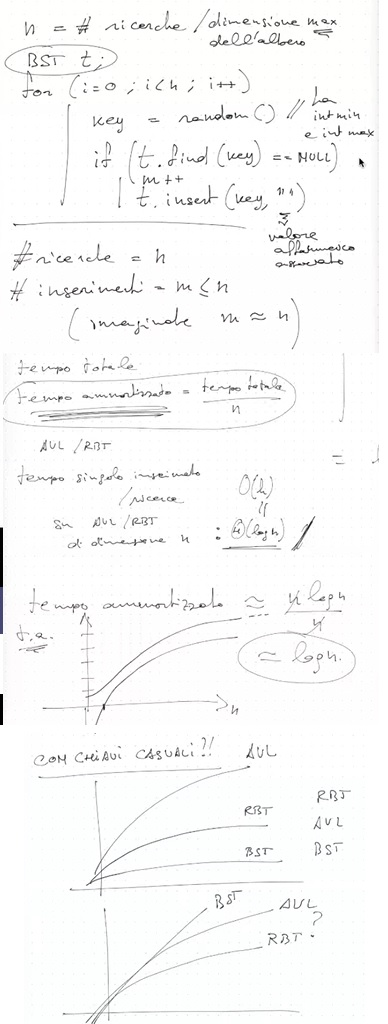 n = # ricerche / dimensione max
dell'albero
BST t;
for (i=0 ; i<n ; i++)
key = random() // tra
int min
e int max
if (t.find(key) == NULL)
m++
t.insert(key, "")
valore
alfanumerico
associato
# ricerche = n
# inserimenti = m ≤ n
(immaginate m ≈ n)
tempo totale
tempo ammortizzato = tempo totale / n
AVL / RBT
tempo singolo inserimento
/ricerca O(h)
su AVL/RBT
di dimensione n : Θ(log n)
tempo ammortizzato ≈ n log n / n
t.a.
≈ log n.
n
CON CHIAVI CASUALI?!
AVL
RBT
BST
RBT
AVL
BST
BST
AVL
?
RBT